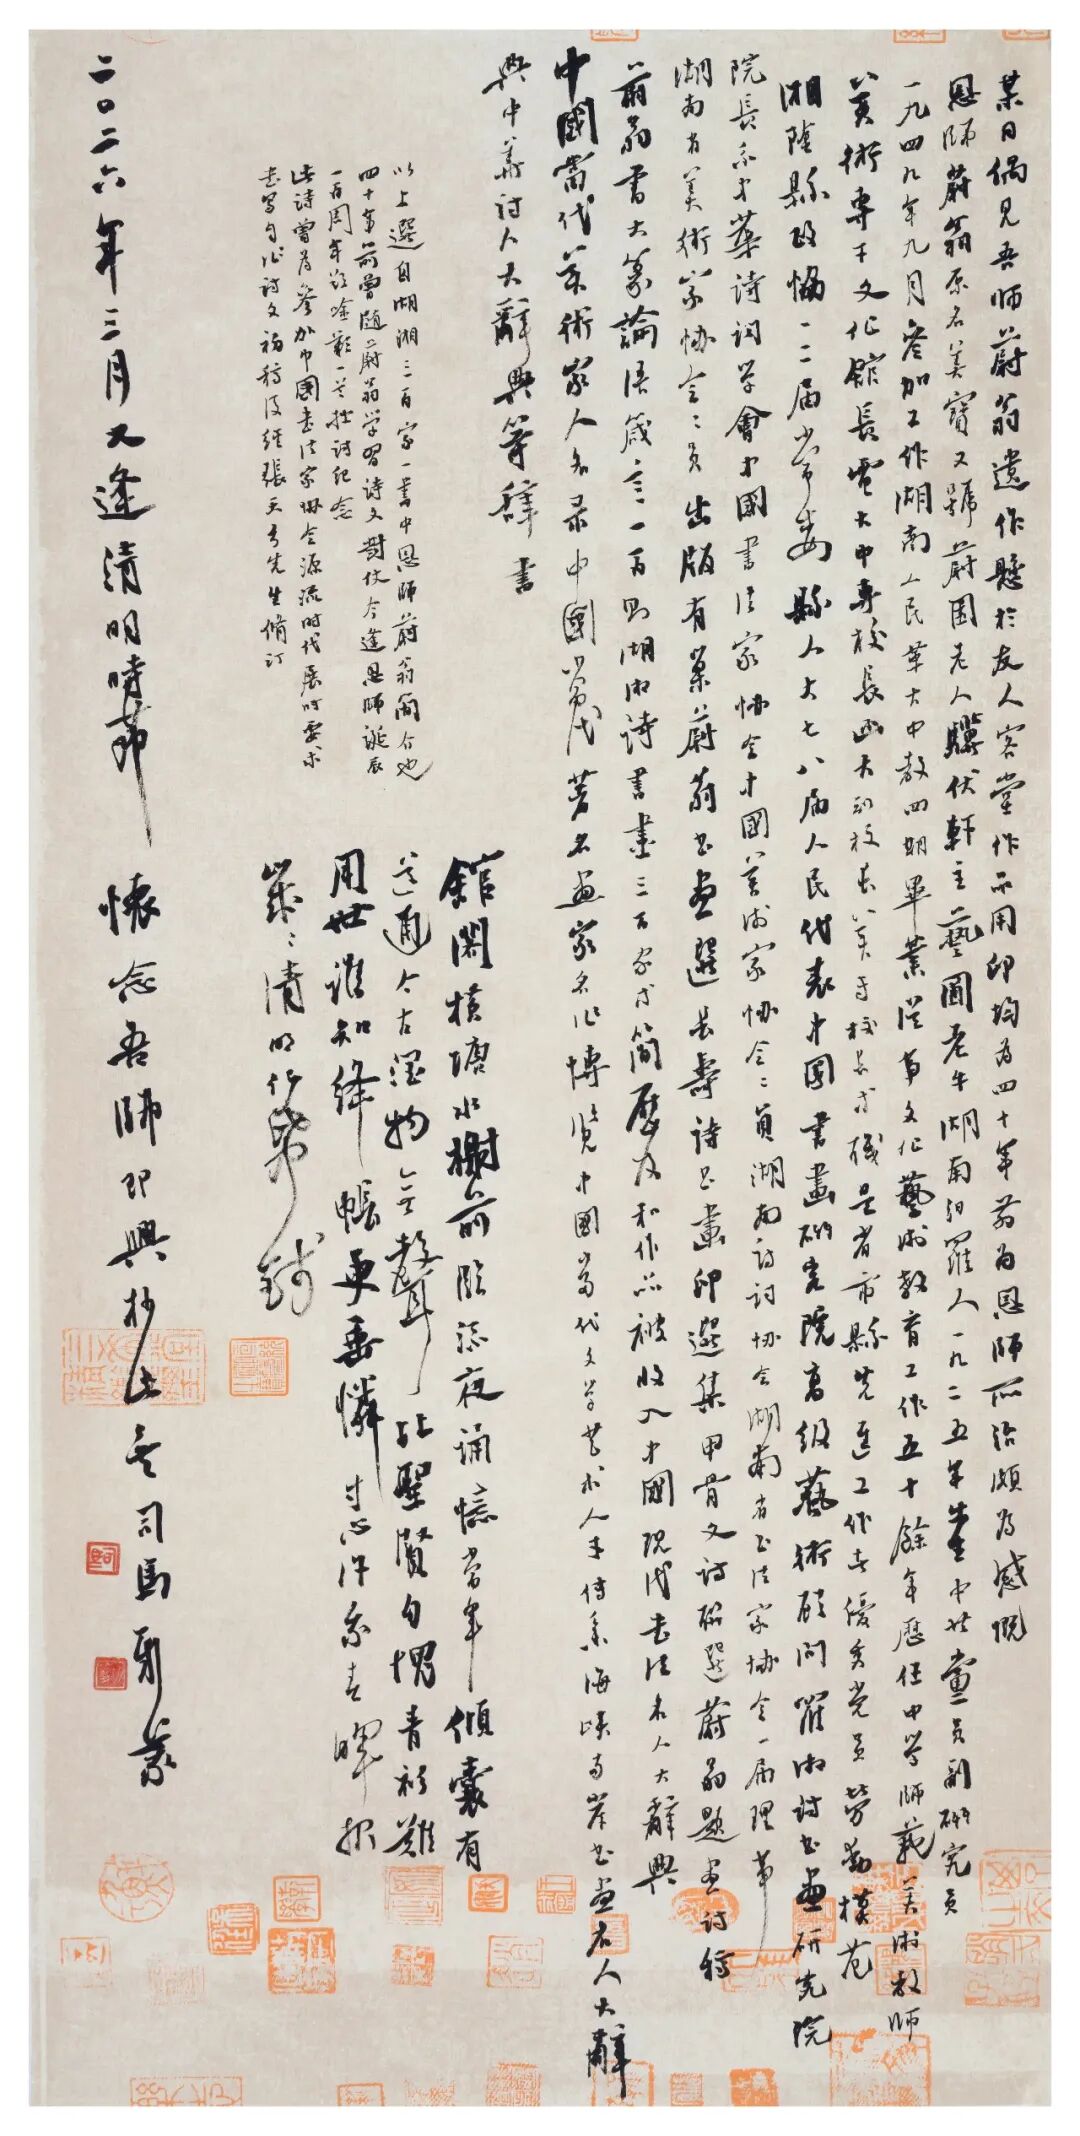 某日偶見吾師蔚翁遺作懸於友人客堂作品用印均為四十年前為恩師所治頗為感慨
恩師蔚翁原名美寶又號蔚園老人驥伏軒主藝園老牛湖南汨羅人一九二五年生中共黨員副研究員
一九四九年九月參加工作湖南人民革大中教四期畢業從事文化藝術教育工作五十餘年歷任中學師範美術教師
美術專干文化館長電大中專校長函大副校長美專校長等職是省市縣先進工作者優秀党員勞動模范
湘陰縣政協一二屆常委縣人大七八屆人民代表中国書畫研究院高級藝術顧问羅湘詩書画研究院
院長系中華詩词学會中國書法家协会中國美術家协会会員湖南诗词协会湖南省书法家协会一届理事
湖南省美術家协会会员出版有巢蔚翁书画選長壽诗书畫印選集甲骨文诗联選蔚翁题画诗稿
蔚翁書大篆論语箴言一百則湖湘詩書畫三百家等简歷及和作品被收入中國現代書法术人大辭典
中國當代美術家人名录中國當代著名画家名作博览中國當代文学艺术人才传集海峡两岸书画名人大辭
典中華诗人大辭典等辞書
以上選自湖湘三百家一書中恩師蔚翁简介也
四十年前曾随蔚翁学習诗文對仗今逢恩師诞辰
一百周年 一首拙诗纪念
此诗曾為參加中國书法家协会源流时代展时要求
书写自作诗文初稿後经張天弓先生修订
館閣横塘水榭前臨流夜誦憶當年傾囊有
道通今古潤物無聲 聖賢自愧青衫難
用世谁知绛帳更垂憐寸心许系春暉报
歲歲清明化紙錢
二〇二六年三月又逢清明時節 懷念吾師即興抄此 司馬